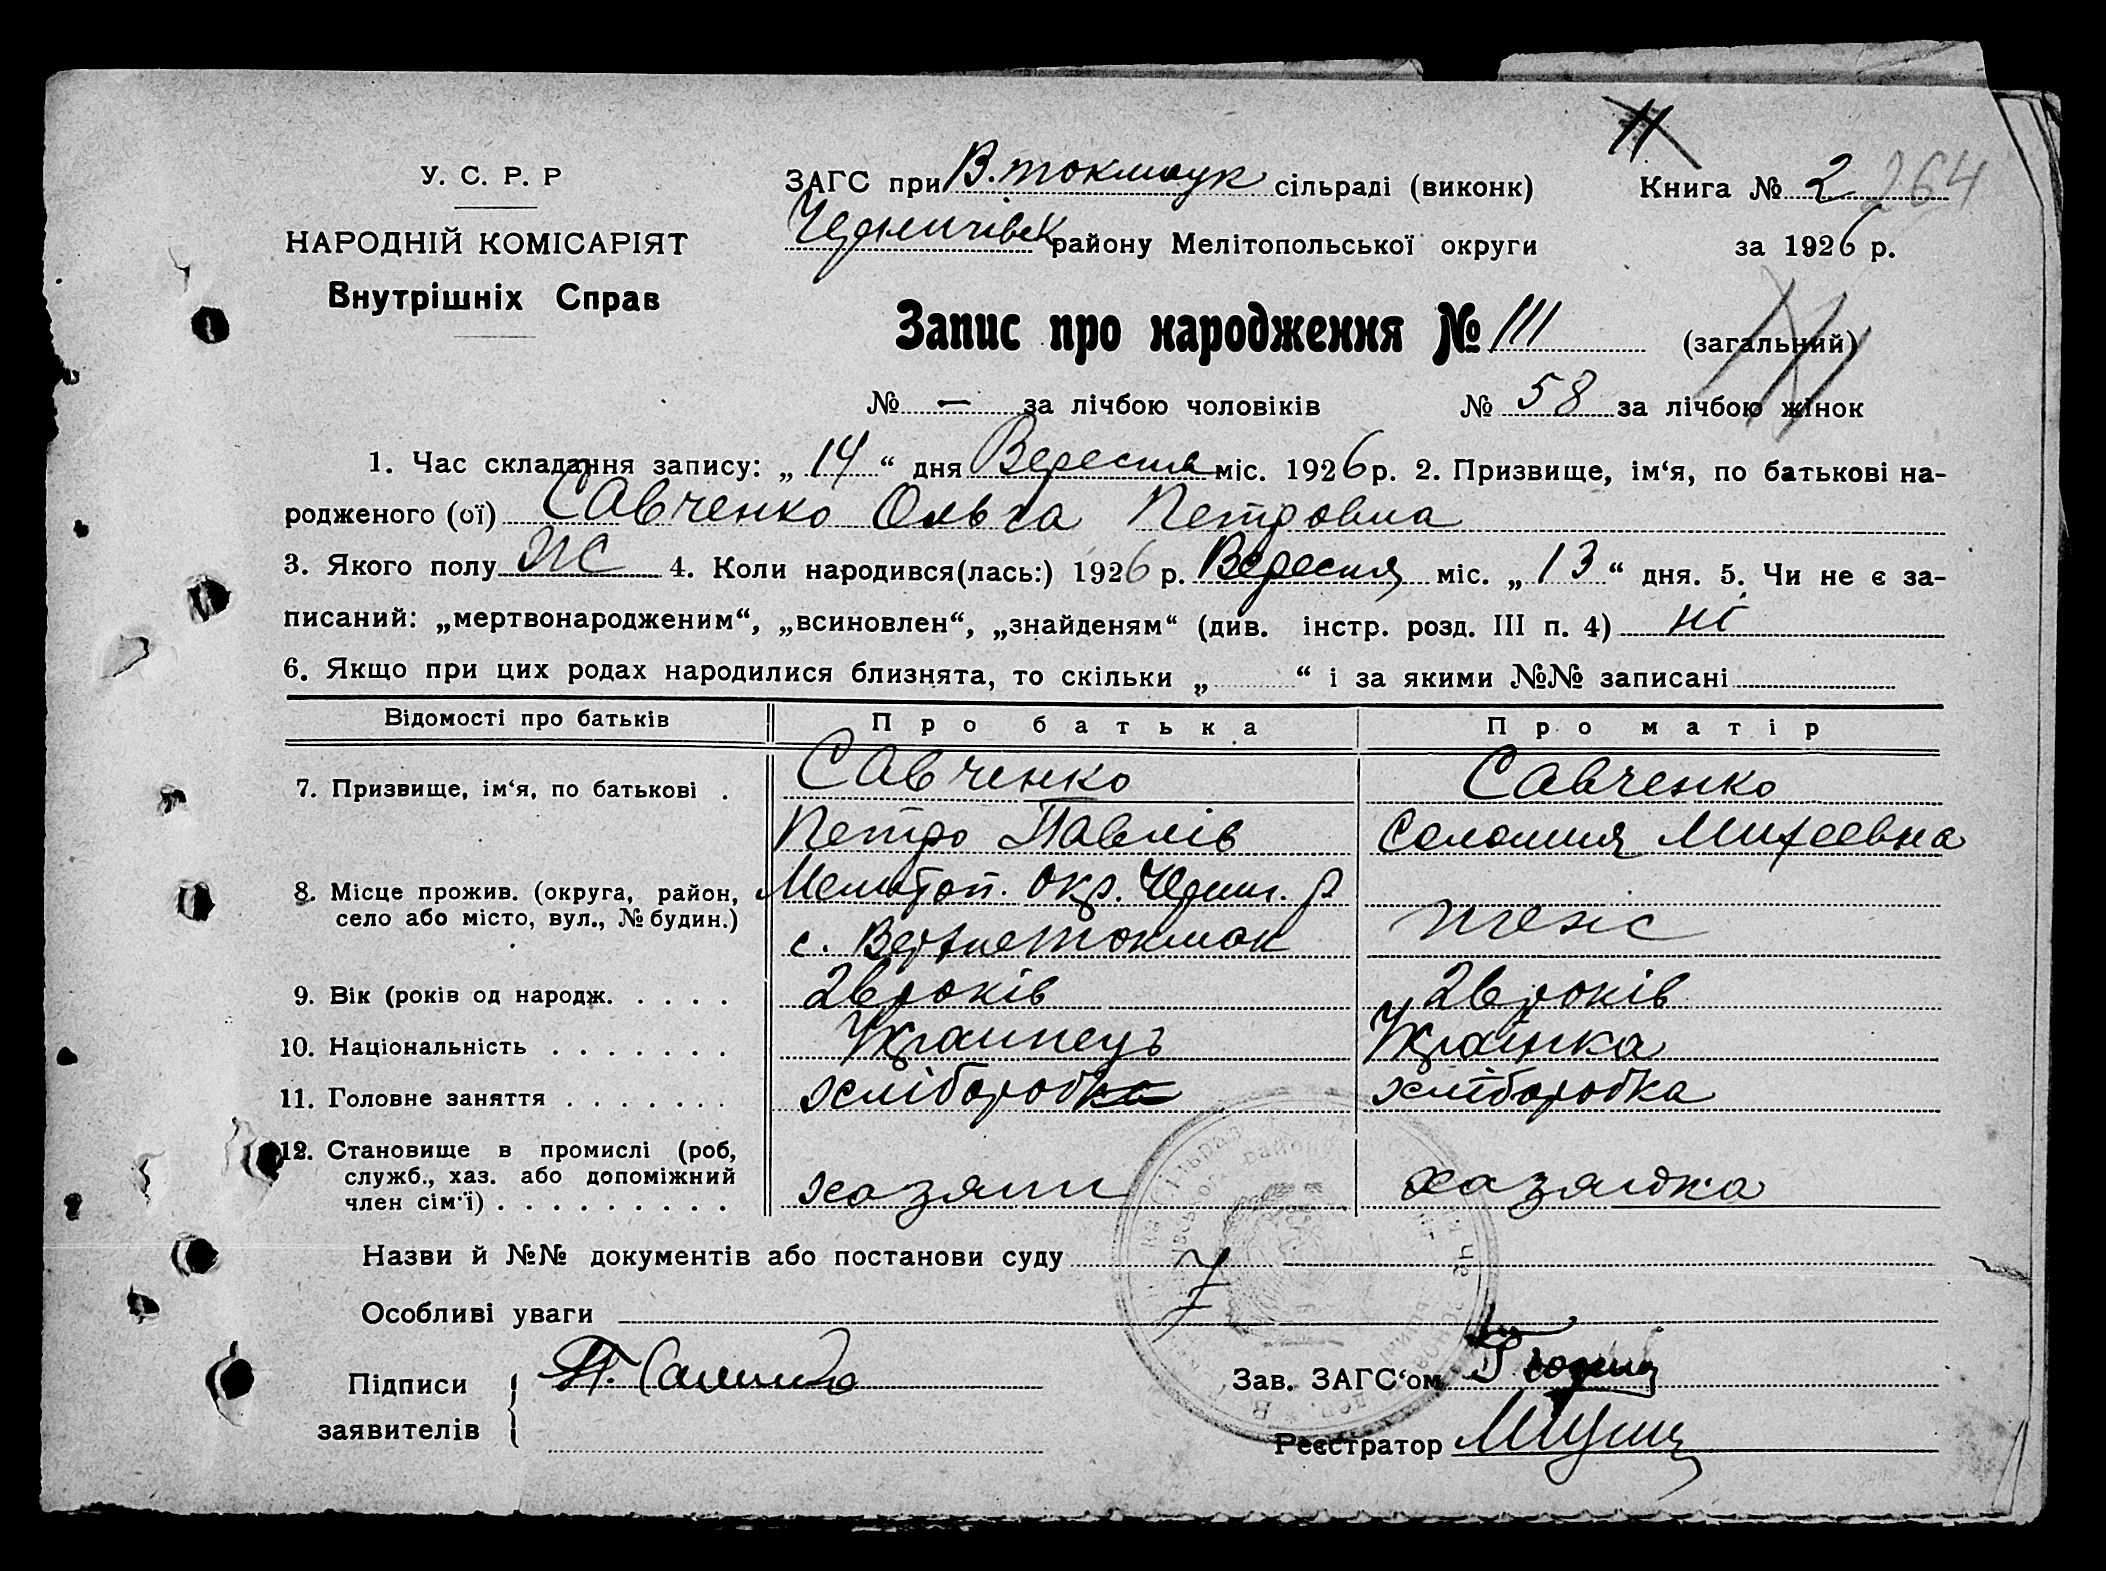 11
У. С. Р. Р
НАРОДНІЙ КОМІСАРІЯТ
Внутрішніх Справ
ЗАГС при В. токмаук сільраді (виконк)
Книга № 2 264
району Мелітопольської округи
за 1926 р.
Запис про народження № 111 (загальний)
№ — за лічбою чоловіків № 58 за лічбою жінок
1. Час складання запису: „ 14 “ дня Вересня міс. 1926 р. 2. Призвище, ім‘я, по батькові на-
родженого (ої) Савченко Ольга Петровна
3. Якого полу ж 4. Коли народився(лась:) 1926 р. Вересня міс. „ 13 “ дня. 5. Чи не є за-
писаний: „мертвонародженим“, „всиновлен“, „знайденям“ (див. інстр. розд. III п. 4) ні
6. Якщо при цих родах народилися близнята, то скільки „ “ і за якими №№ записані
Відомості про батьків Про батька Про матір
7. Призвище, ім‘я, по батькові . Савченко Савченко
Петро Павлів Соломия Михеевна
8. Місце прожив. (округа, район, Мелітоп. Окр. р
село або місто, вул., № будин.) с. Верхнетокмак теж
9. Вік (років од народж. . . . . 26 років 26 років
10. Національність . . . . . . . Украинець Українка
11. Головне заняття . . . . . . . хлібороб хліборобка
12. Становище в промислі (роб,
служб., хаз. або допоміжний
член сім‘ї) . . . . . . . . . хазяин хазяйка
Назви й №№ документів або постанови суду
Особливі уваги
Підписи
заявителів
Зав. ЗАГС‘ом
Реєстратор